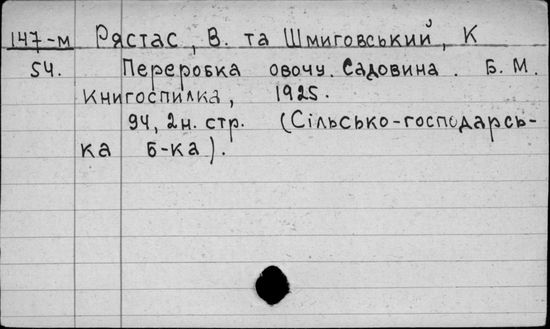 147-м Рястас, В. та Шмиговський, К
54. Переробка овочу. Садовина. Б.М.
Книгоспилка, 1925.
94, 2н. стр. (Сільсько-господарсь-
ка б-ка).